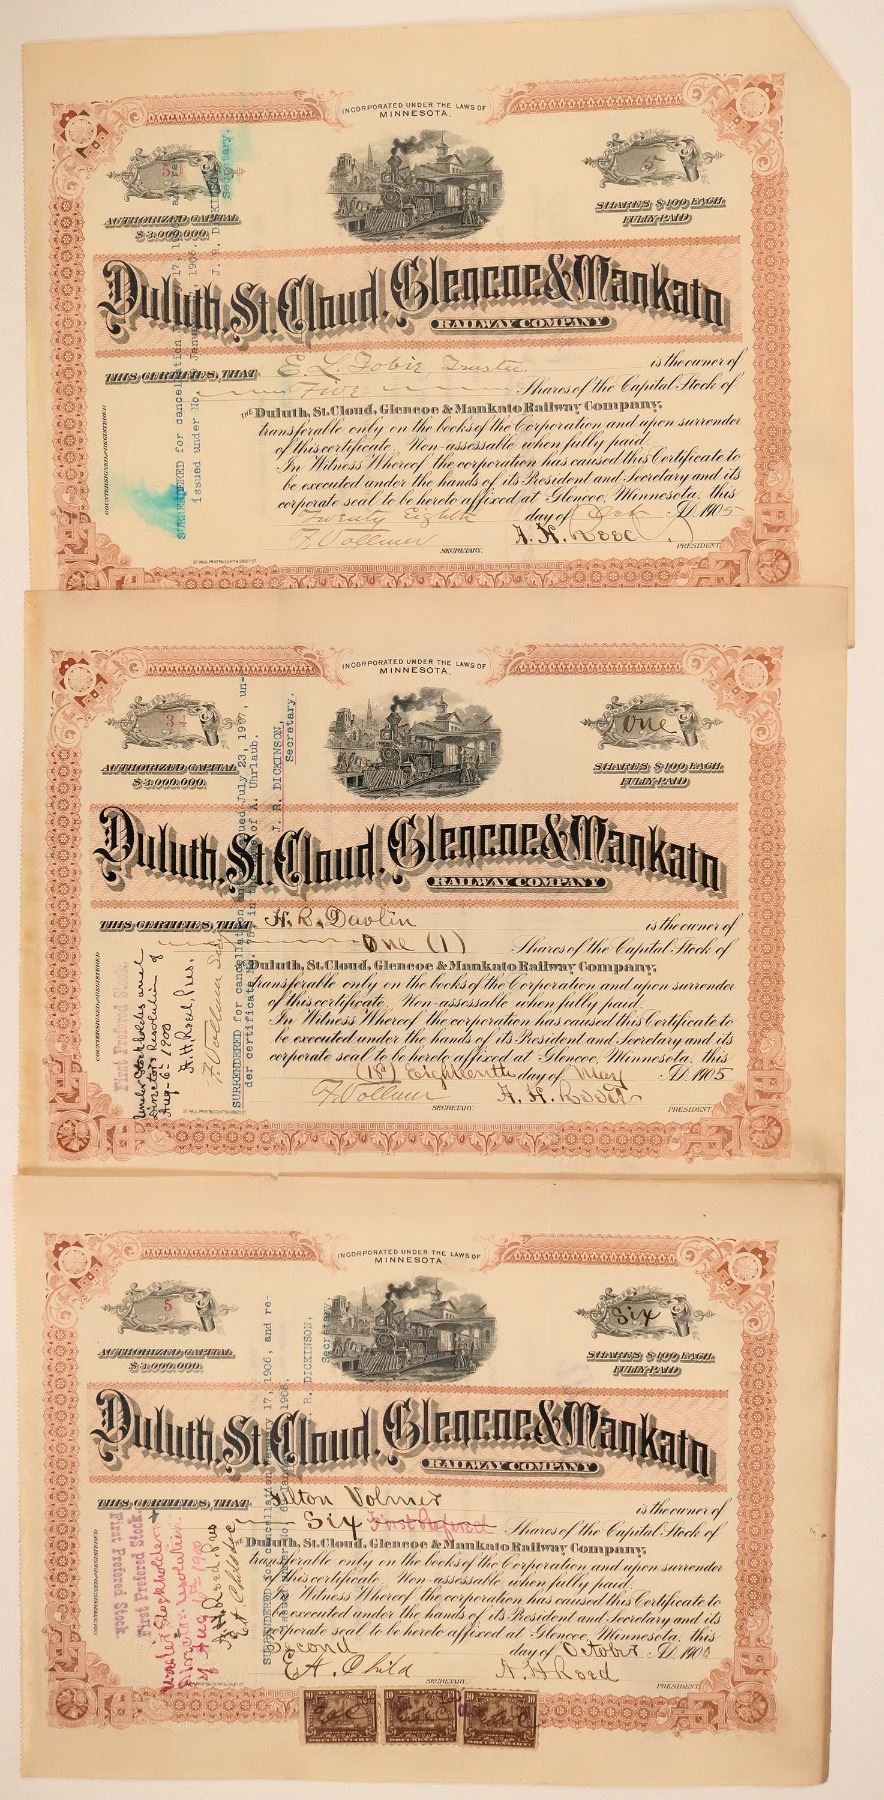 INCORPORATED UNDER THE LAWS OF
MINNESOTA.
AUTHORIZED CAPITAL
$3,000,000.
SHARES $100 EACH.
FULLY PAID
Duluth, St. Cloud, Glencoe & Mankato
RAILWAY COMPANY
THIS CERTIFIES, THAT E. L. Tobie, Trustee is the owner of
Five Shares of the Capital Stock of
THE Duluth, St. Cloud, Glencoe & Mankato Railway Company,
transferable only on the books of the Corporation and upon surrender
of this certificate. Non-assessable when fully paid.
In Witness Whereof the corporation has caused this Certificate to
be executed under the hands of its President and Secretary and its
corporate seal to be hereto affixed at Glencoe, Minnesota, this
Twenty Eighth day of Oct A.D. 1905
F. Vollmer SECRETARY. A. H. PRESIDENT
COUNTERSIGNED AND REGISTERED
SURRENDERED for cancellation 17, 1906, and re
issued under No. January 1906.
J. R. DICKINSON
Secretary.
INCORPORATED UNDER THE LAWS OF
MINNESOTA.
34
One
AUTHORIZED CAPITAL
$3,000,000.
SHARES $100 EACH.
FULLY PAID
Duluth, St. Cloud, Glencoe & Mankato
RAILWAY COMPANY
THIS CERTIFIES, THAT H. R. Davlin is the owner of
One (1) Shares of the Capital Stock of
Duluth, St. Cloud, Glencoe & Mankato Railway Company,
transferable only on the books of the Corporation and upon surrender
of this certificate. Non-assessable when fully paid.
In Witness Whereof the corporation has caused this Certificate to
be executed under the hands of its President and Secretary and its
corporate seal to be hereto affixed at Glencoe, Minnesota, this
(18) Eighteenth day of May A.D. 1905
F. Vollmer SECRETARY. A. H. Rood PRESIDENT
COUNTERSIGNED AND REGISTERED
First Preferred Stock.
Under Stockholders and
Directors Resolution of
Aug-6th 1900
A. H. Rood, Pres.
F. Vollmer Secy
SURRENDERED for cancellation and issued July 23, 1907, un-
der certificate No. 75, in the name of A. Uhrlaub.
J. R. DICKINSON,
Secretary.
INCORPORATED UNDER THE LAWS OF
MINNESOTA.
5
Six
AUTHORIZED CAPITAL
$3,000,000.
SHARES $100 EACH.
FULLY PAID
Duluth, St. Cloud, Glencoe & Mankato
RAILWAY COMPANY
THIS CERTIFIES, THAT Milton Volmer is the owner of
Six First Prefered Shares of the Capital Stock of
THE Duluth, St. Cloud, Glencoe & Mankato Railway Company,
transferable only on the books of the Corporation and upon surrender
of this certificate. Non-assessable when fully paid.
In Witness Whereof the corporation has caused this Certificate to
be executed under the hands of its President and Secretary and its
corporate seal to be hereto affixed at Glencoe, Minnesota, this
Second day of October A.D. 190
E. A. Child SECRETARY. A. H. Rood PRESIDENT.
COUNTERSIGNED AND REGISTERED
First Prefered Stock.
First Prefered Stock.
Under Stockholders
Directors resolution
of Aug 6th 1900
A. H. Rood Pres
SURRENDERED for cancellation January 17, 1906, and re-
issued under No. 6 January 1906.
R. DICKINSON,
Secretary.
10 10
DOCUMENTARY
10 10
DOCUMENTARY
10 10
DOCUMENTARY